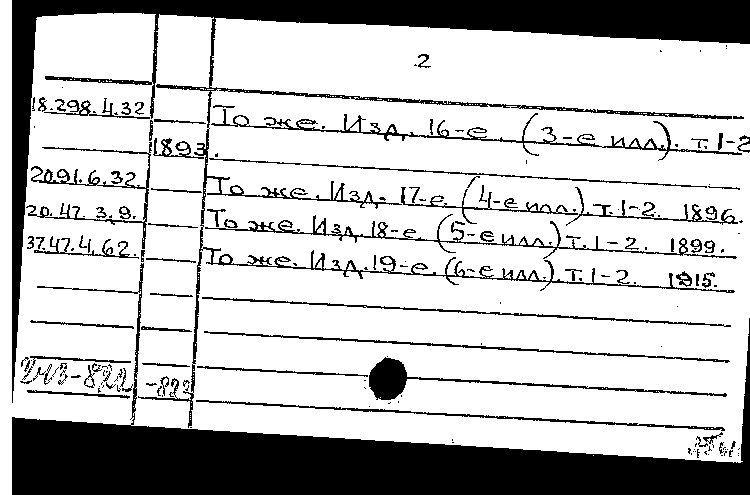 2
18.298.4.32 То же. Изд. 16-е. (3-е илл.). т. 1-2
1893.
20.91.6.32. То же. Изд. 17-е. (4-е илл.). т. 1-2. 1896.
20.47.3.9. То же. Изд. 18-е. (5-е илл.) т. 1-2. 1899.
37.47.4.62. То же. Изд. 19-е. (6-е илл.). т. 1-2. 1915.
-822